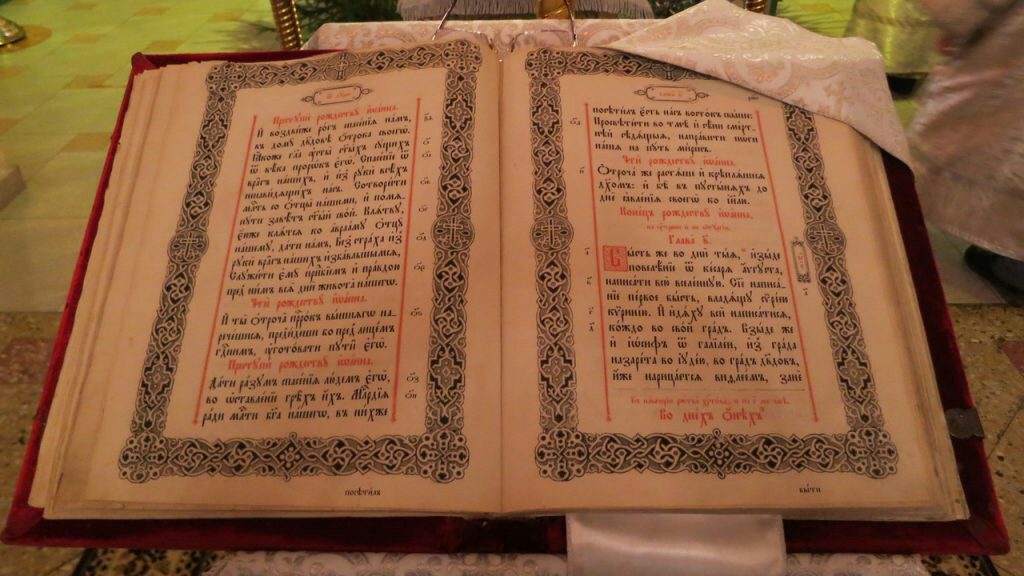 Престꙋпи́ рождествꙋ̀ і҆ѡа́нна.
И҆ воздви́же ро́гъ спасе́нїѧ на́мъ,
въ домꙋ̀ дв҃довѣ ѻ҆́трока своегѡ̀.
ѿ вѣ́ка прⷪ҇рѡ́къ є҆гѡ̀. Спасе́нїе ѿ
вра҄гъ на́шихъ, и҆ и҆з̾ рꙋкѝ всѣ́хъ
ненави́дѧщихъ на́съ. Сотвори́ти
млⷭ҇ть со ѻ҆тцы҄ на́шими, и҆ помѧ-
нꙋ́ти завѣ́тъ ст҃ы́й сво́й. Клѧ́твꙋ,
є҆́юже клѧ́тсѧ ко а҆враа́мꙋ ѻ҆тцꙋ̀
на́шемꙋ, да́ти на́мъ, без̾ стра́ха и҆з̾
рꙋкѝ вра҄гъ на́шихъ и҆зба́вльшымсѧ,
Слꙋжи́ти є҆мꙋ̀ прⷣбїемъ и҆ пра́вдою
пред̾ ни́мъ всѧ҄ дни҄ живота̀ на́шегѡ.
Чтѝ рождествꙋ̀ і҆ѡа́нна.
И҆ ты̀ ѻ҆троча̀ прⷪ҇ро́къ вы́шнѧгѡ на-
рече́шисѧ, пред̾и́деши бо пред̾ лице́мъ
гдⷭ҇нимъ, ᲂу҆гото́вати пꙋти҄ є҆гѡ̀.
Престꙋпи́ рождествꙋ̀ і҆ѡа́нна.
Да́ти ра́зꙋмъ спасе́нїѧ лю́демъ є҆гѡ̀,
во ѡ҆ставле́нїи грѣ̑хъ и҆́хъ. Милосе́рдїѧ
ра́ди млⷭ҇ти бг҃а на́шегѡ, въ ни́хже
посѣти́лъ
посѣти́лъ є҆́сть на́съ восто́къ свы́ше:
Просвѣти́ти во тмѣ̀ и҆ сѣ́ни сме́рт-
нѣй сѣдѧ́щыѧ, напра́вити но́ги
на́шѧ на пꙋ́ть ми́ренъ.
Чтѝ рождествꙋ̀ і҆ѡа́нна.
Ѻ҆троча́ же растѧ́ше и҆ крѣплѧ́шесѧ
дꙋ́хомъ: и҆ бѣ̀ въ пꙋсты́нѧхъ до
днѐ ꙗ҆вле́нїѧ своегѡ̀ ко і҆и҃лю.
Коне́цъ рождествꙋ̀ і҆ѡа́нна.
Глава̀ в҃.
Бы́сть же во дни҄ ты҄ѧ, и҆зы́де
повелѣ́нїе ѿ ке́сарѧ а҆́ѵгꙋста,
написа́ти всю̀ вселе́ннꙋю. Сїѐ написа́-
нїе пе́рвое бы́сть, владѧ́щꙋ сѷрі́ею
кѷри́нїю. И҆ и҆дѧ́хꙋ всѝ написа́тисѧ,
ко́ждо во сво́й гра́дъ. Взы́де же
и҆ і҆ѡ́сифъ ѿ галїле́и, и҆з̾ гра́да
назаре́та во і҆ꙋде́ю, во гра́дъ дв҃довъ,
и҆́же нарица́етсѧ виѳлее́мъ, занѐ
Во дне́хъ ѻ҆́нѣхъ
бы́ти